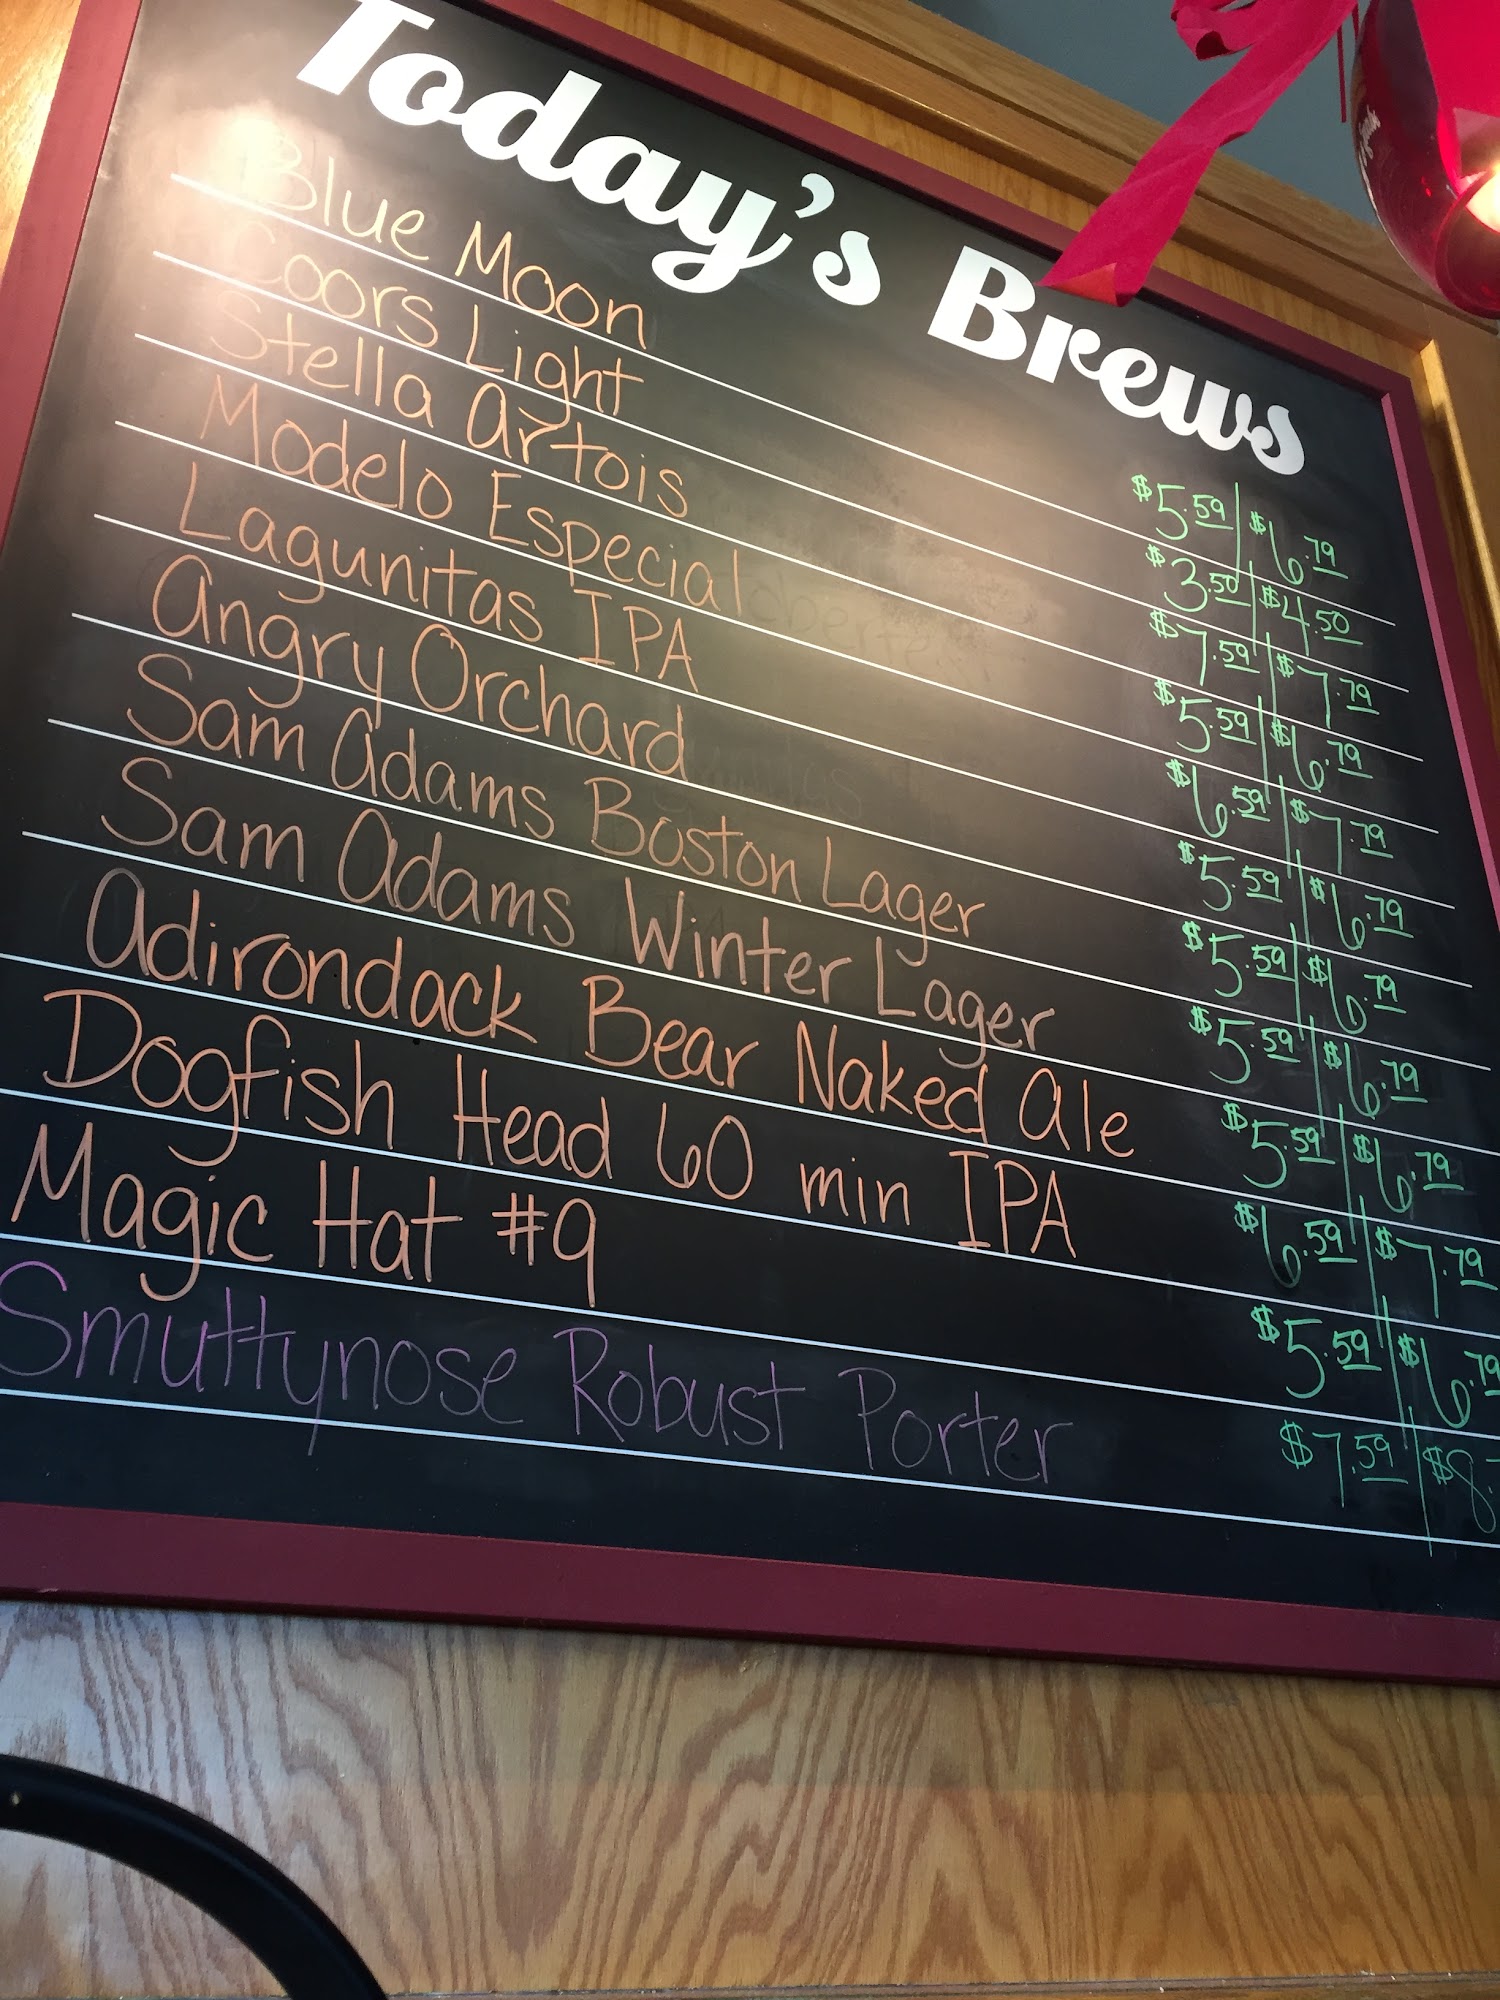 Today's Brews
Blue Moon $5.59 $6.79
Coors Light $3.50 $4.50
Stella Artois $7.59 $7.79
Modelo Especial $5.59 $6.79
Lagunitas IPA $6.59 $7.79
Angry Orchard $5.59 $6.79
Sam Adams Boston Lager $5.59 $6.79
Sam Adams Winter Lager $5.59 $6.79
Adirondack Bear Naked Ale $5.59 $6.79
Dogfish Head 60 min IPA $6.59 $7.79
Magic Hat #9 $5.59 $6.79
Smuttynose Robust Porter $7.59 $8.